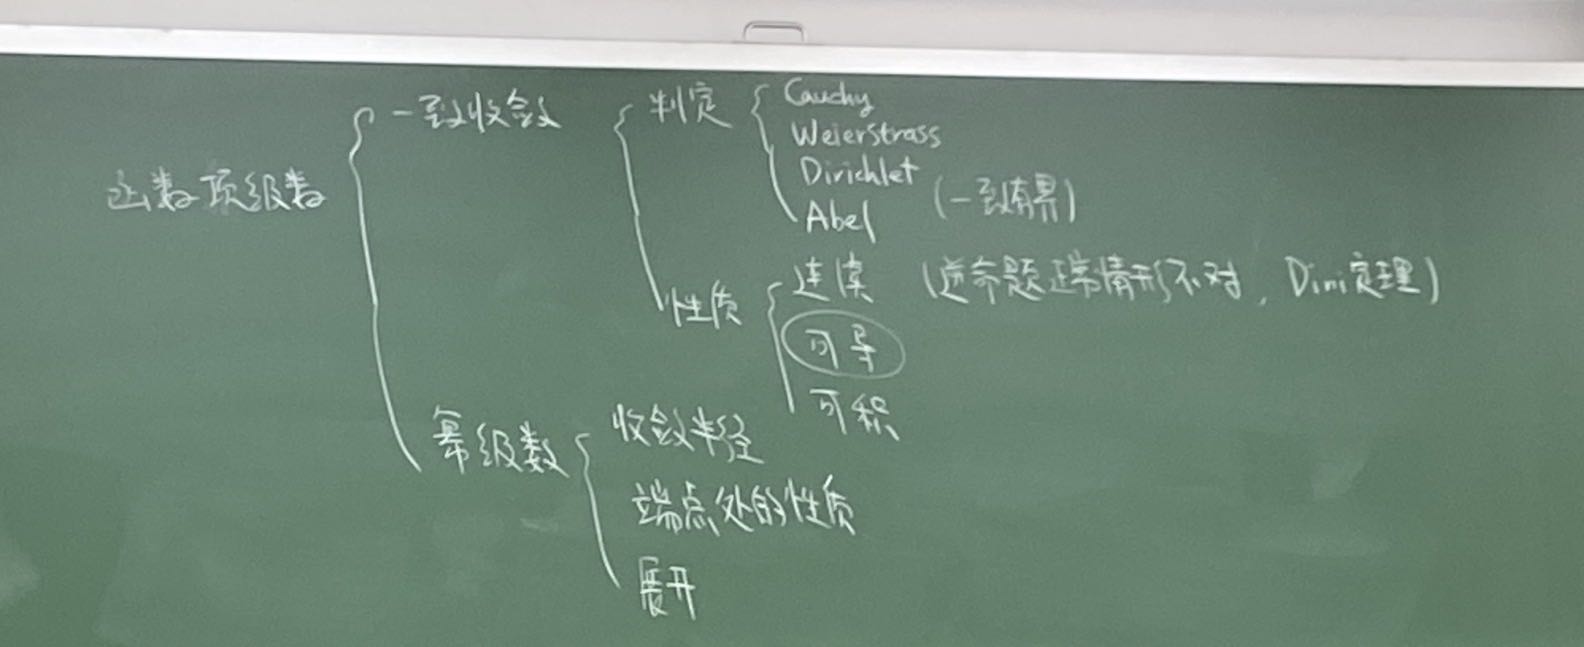 函数项级数
一致收敛
判定
Cauchy
Weierstrass
Dirichlet
Abel (一致有界)
性质
连续 (逆命题正常情形不对, Dini定理)
可导
可积
幂级数
收敛半径
端点处的性质
展开